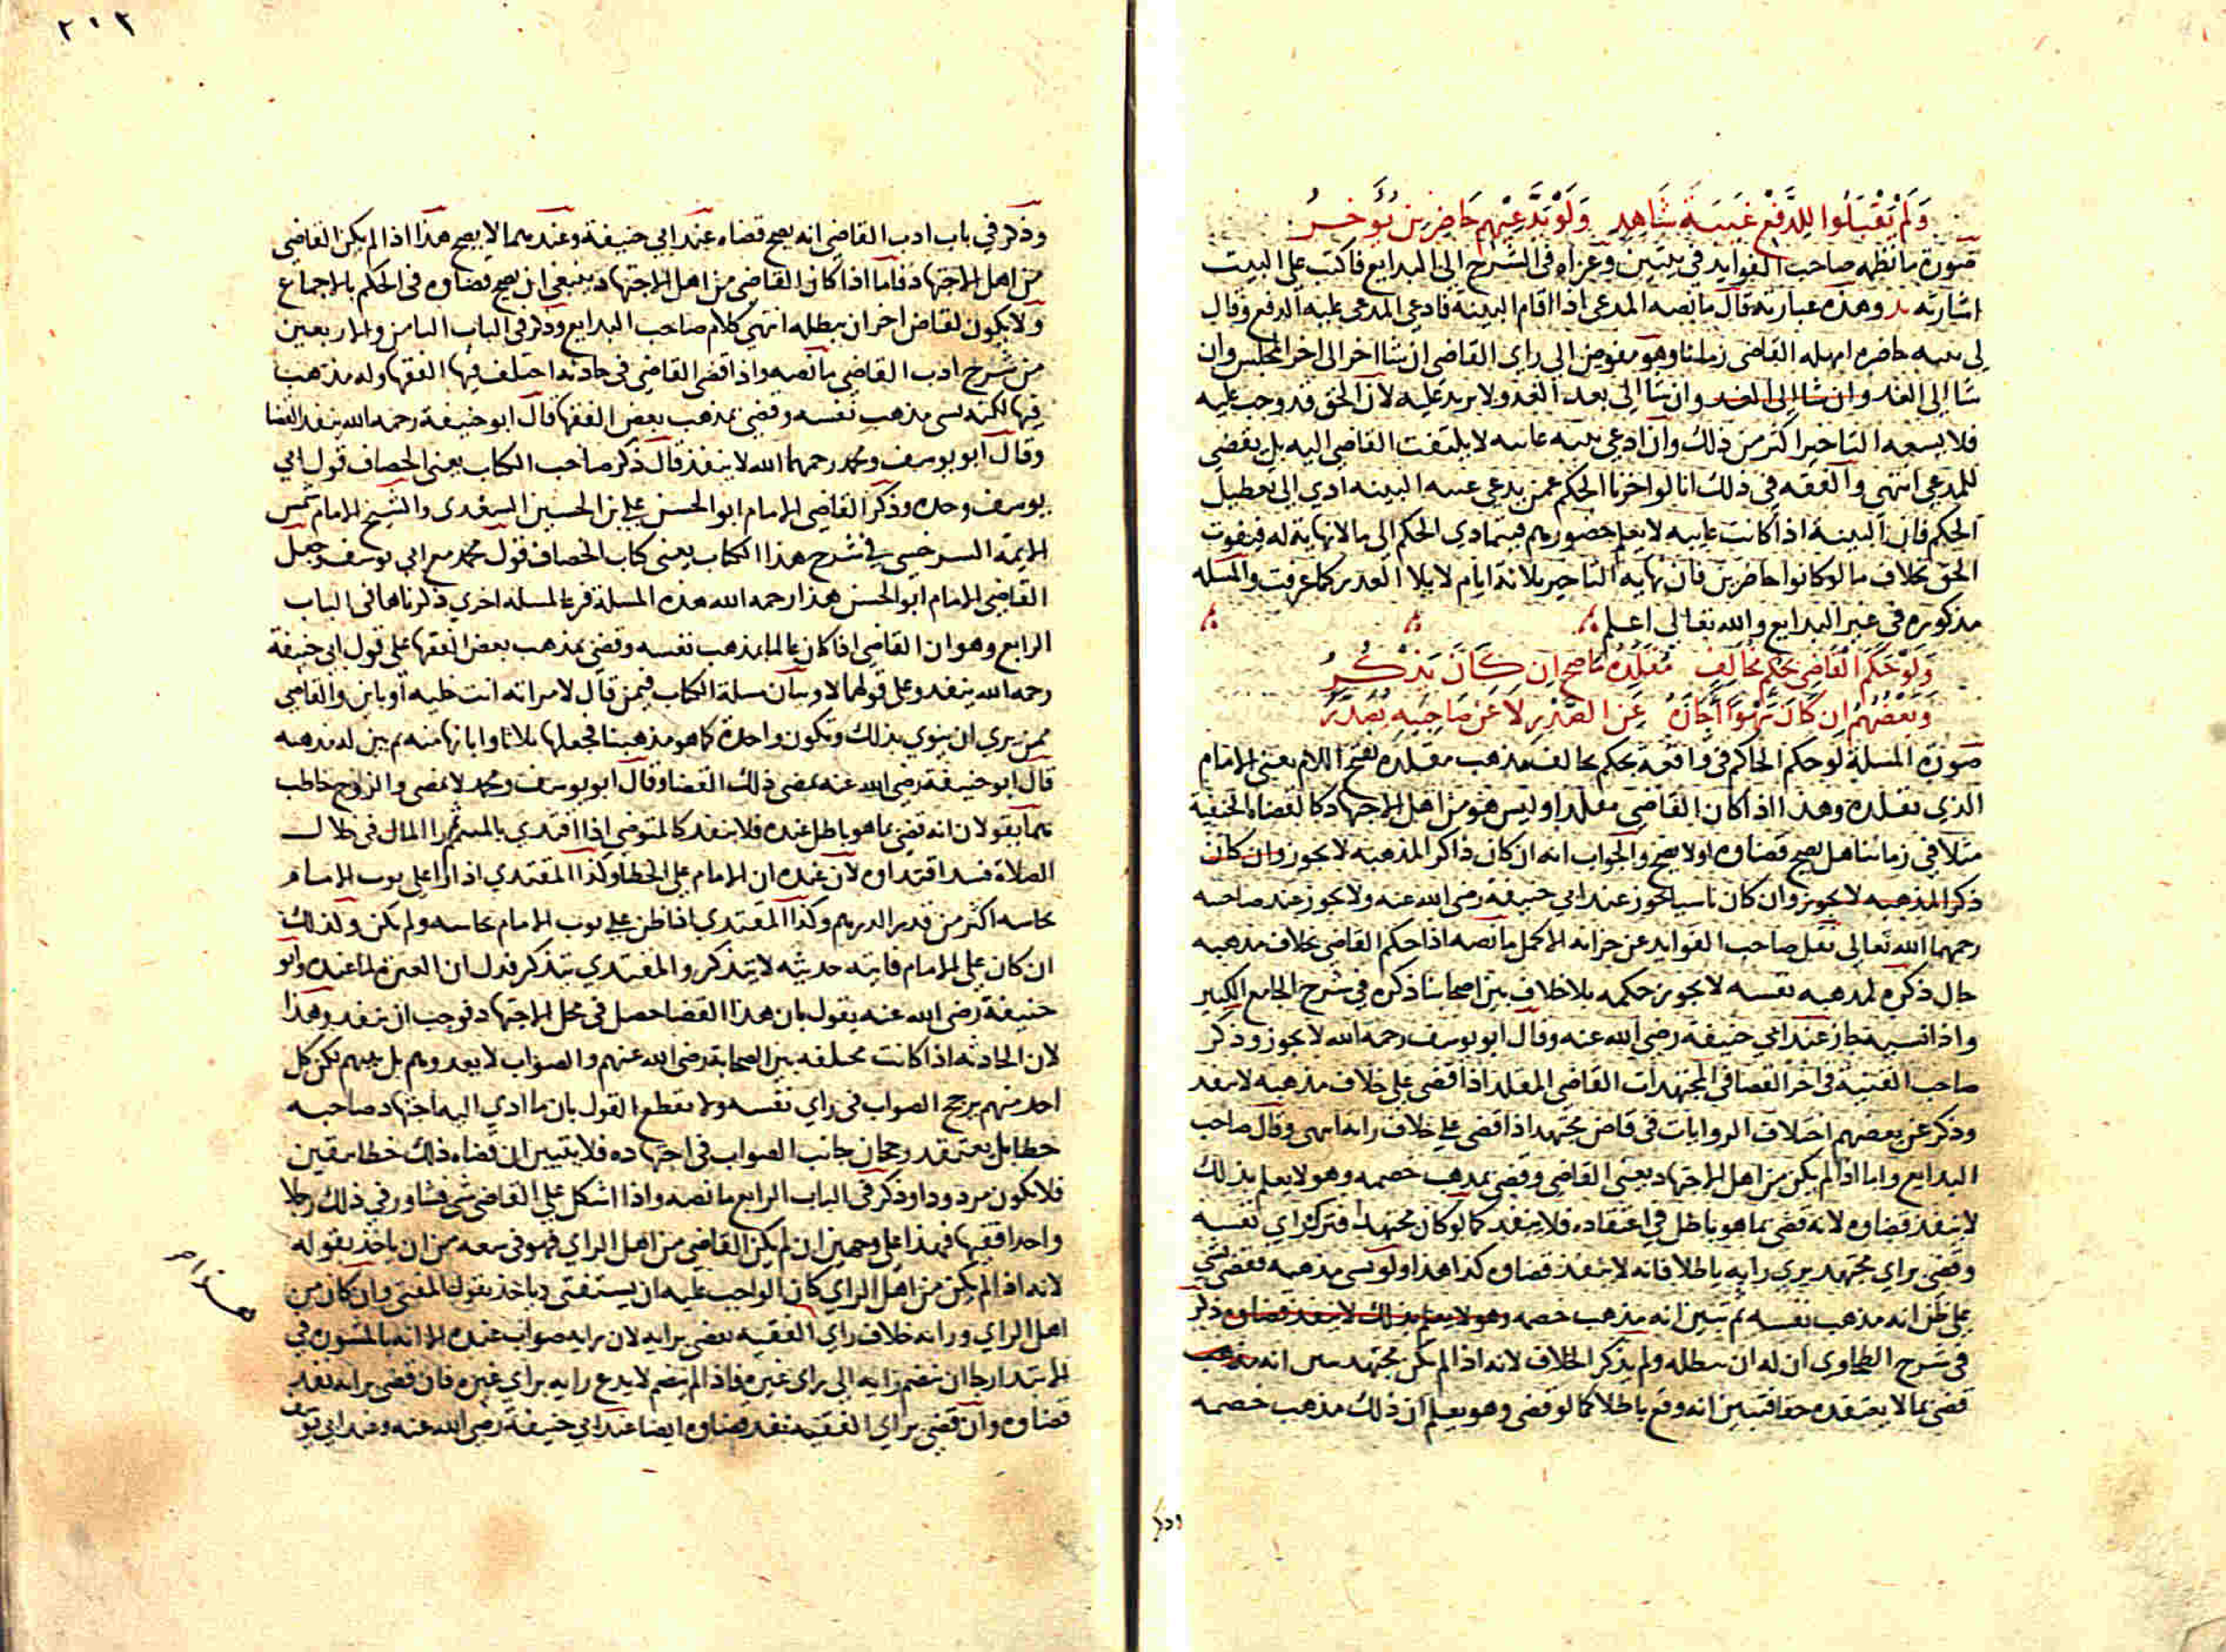 ولم يقبلوا للدفع غيبة شاهد ولو يدعيهم حاضرين يؤخر
صورة ما نظمه صاحب الفوايد في بيتين وعزاه في الشرح الى البدايع فاكتب على البيت
اشارته بد وهذه عبارته قال ما نصه المدعي اذا اقام البينة فادعى المدعى عليه الدفع وقال
لي بينه حاضره امهله القاضي زمانا وهو مفوض الى راي القاضي ان شا اخر الى اخر المجلس وان
شا الى الغد وان شا الى الغد وان شا الى بعد الغد ولا يزيد عليه لان الحق قد وجب عليه
فلا يسعه التاخير اكثر من ذلك وان ادعى بينه غايبه لا يلتفت القاضي اليه بل يقضي
للمدعي انتهى والفقه في ذلك انا لو اخرنا الحكم عمن يدعي غيبه البينه ادي الى تعطيل
الحكم فان البينة اذا كانت غايبه لا يعلم حضورهم فيتمادي الحكم الى ما لا نهاية له فيفوت
الحق بخلاف ما لو كانوا حاضرين فان نهاية التاخير ثلاثة ايام لابلا العذر كما عرفت والمسله
مذكوره في غير البدايع والله تعالى اعلم
ولو حكم القاضي بحكم مخالف مقلده ما صح ان كان يذكر
وبعضهم ان كان سهوا اجازه عن الصدر لا عن صاحبيه يصدر
صورة المسلة لو حكم الحاكم في واقعة بحكم مخالف لمذهب مقلده بفتح اللام يعني الامام
الذي يقلده وهذا اذا كان القاضي مقلدا وليس هو من اهل الاجتهاد كالقضاة الحنفية
مثلا في زماننا هل يصح قضاوه او لا يصح والجواب انه ان كان ذاكرا لمذهبه لا يجوز وان كان
ذكرا لمذهبه لا يجوز وان كان ناسيا يجوز عند ابي حنيفة رضي الله عنه ولا يجوز عند صاحبيه
رحمهما الله تعالى نقل صاحب الفوايد عن خزانة الاكمل ما نصه اذا حكم القاضي بخلاف مذهبه
حال ذكره لمذهبه نفسه لا يجوز حكمه بلا خلاف بين اصحابنا ذكره في شرح الجامع الكبير
واذا نسيه جاز عند ابي حنيفة رضي الله عنه وقال ابو يوسف رحمه الله لا يجوز وذكر
صاحب القنية في اخر القضا في المجتهدات القاضي المقلد اذا قضى على خلاف مذهبه لا ينفذ
وذكر عن بعضهم اختلاف الروايات في قاض مجتهد اذا قضى على خلاف رايه انتهى وقال صاحب
البدايع واما اذا لم يكن من اهل الاجتهاد يعني القاضي وقضى بمذهب خصمه وهو لا يعلم بذلك
لا ينفذ قضاوه لانه قضى بما هو باطل في اعتقاده فلا ينفذ كما لو كان مجتهدا فترك راي نفسه
وقضى براي مجتهد يري رايه باطلا فانه لا ينفذ قضاوه كذا هذا ولو نسي مذهبه فقضى بشي
على ظن انه مذهب نفسه ثم تبين انه مذهب خصمه وهو لا يعلم بذلك لا ينفذ قضاوه ذكر
في شرح الطحاوي ان له ان يبطله ولم يذكر الخلاف لانه اذا لم يكن مجتهد تبين انه مذهب
قضى بما لا يعتقده حقا فتبين انه وقع باطلا كما لو قضى وهو يعلم ان ذلك مذهب خصمه
وذكر
٢١٣
وذكر في باب ادب القاضي انه يصح قضاه عند ابي حنيفة وعندهما لا يصح هذا اذا لم يكن القاضي
من اهل الاجتهاد فاما اذا كان القاضي من اهل الاجتهاد ينبغي ان يصح قضاوه في الحكم بالاجماع
ولا يكون لقاض اخر ان يبطله انتهى كلام صاحب البدايع وذكر في الباب الثامن والاربعين
من شرح ادب القاضي ما نصه واذا قضى القاضي في حادثة اختلف فيها الفقها وله مذهب
فيها لكنه نسي مذهب نفسه وقضى بمذهب بعض الفقها قال ابو حنيفة رحمه الله ينفذ القضا
وقال ابو يوسف ومحمد رحمهما الله لا ينفذ قال ذكر صاحب الكتاب يعني الخصاف قول ابي
يوسف وحده وذكر القاضي الامام ابو الحسن علي بن الحسين السغدي والشيخ الامام شمس
الايمة السرخسي في شرح هذا الكتاب يعني كتاب الخصاف قول محمد مع ابي يوسف وجعل
القاضي الامام ابو الحسن هذا رحمه الله هذه المسلة فرعا لمسلة اخري ذكرناها في الباب
الرابع وهو ان القاضي اذا كان عالما بمذهب نفسه وقضى بمذهب بعض الفقها على قول ابي حنيفة
رحمه الله ينفذ وعلى قولهما لا وبيان مسلة الكتاب فيمن قال لامراته انت خلية او باين والقاضي
ممن يري ان ينوي بذلك وتكون واحدة كما هو مذهبنا فجعلها ثلاثا وابانها منه ثم تبين له مذهبه
قال ابو حنيفة رضي الله عنه يمضى ذلك القضا وقال ابو يوسف ومحمد لا يمضى والزوج خاطب
هما يقولان انه قضى بما هو باطل عنده فلا ينفذ كالمتوضي اذا اقتدي بالمتيمم الما في خلال
الصلاة فسد اقتداوه لان عنده ان الامام على الخطا وكذا المقتدي اذا راا على ثوب الامام
نجاسه اكثر من قدر الدرهم وكذا المقتدي اذا ظن على ثوب الامام نجاسه ولم يكن وكذلك
ان كان على الامام فايته حديثه لا يتذكر والمقتدي يتذكر فدل ان العبرة لما عنده وابو
حنيفة رضي الله عنه يقول بان هذا القضا حصل في محل الاجتهاد فوجب ان ينفذ وهذا
لان الحادثه اذا كانت مختلفه بين الصحابة رضي الله عنهم والصواب لا يعدوهم بل بينهم لكن كل
احد منهم يرجح الصواب في راي نفسه ولا يقطع القول بان ما ادي اليه اجتهاد صاحبه
خطا بل يعتقد رجحان جانب الصواب في اجتهاده فلا يتبين ان قضاه ذلك خطا بيقين
فلا يكون مردودا وذكر في الباب الرابع ما نصه واذا اشكل على القاضي شي فشاور في ذلك رجلا
واحدا فقيها فهذا على وجهين ان لم يكن القاضي من اهل الراي فهو في سعه من ان ياخذ بقوله
لانه اذا لم يكن من اهل الراي كان الواجب عليه ان يستفتي وياخذ بقول المفتي وان كان من
اهل الراي ورايه خلاف راي الفقيه يقضي برايه لان رايه صواب عنده الا انه بالمشوره في
الابتدا رجا ان ينضم رايه الى راي غيره فاذا لم ينضم لا يدع رايه براي غيره فان قضى برايه نفذ
قضاوه وان قضى براي الفقيه نفذ قضاوه ايضا عند ابي حنيفة رضي الله عنه وعند ابي يوسف